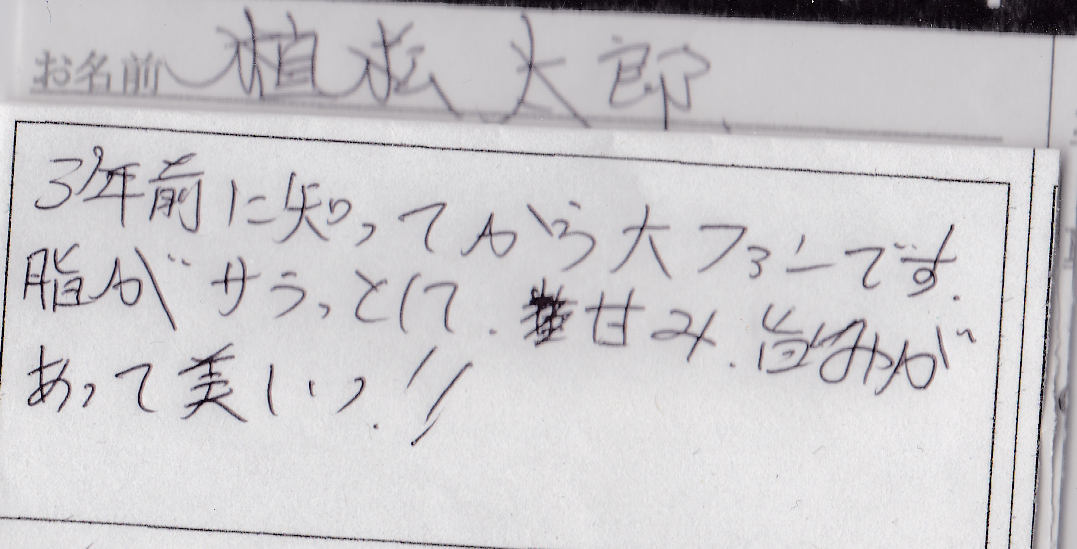 お名前 植松 太郎
3年前に知ってから大ファンです.
脂がサラっとして、甘み、旨みが
あって美しいっ!!